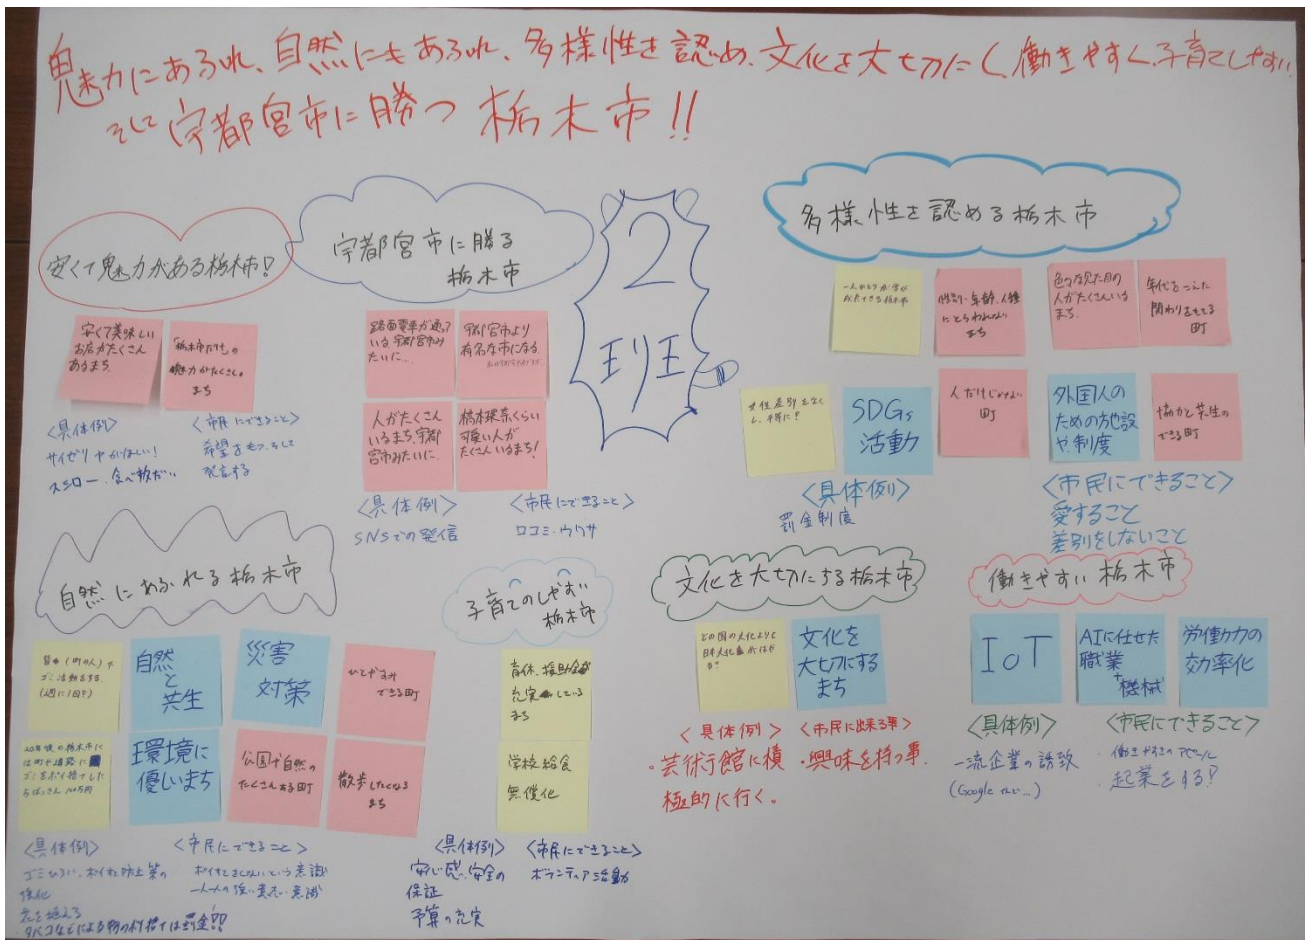 魅力にあふれ、自然にもあふれ、多様性を認め、文化を大切にし、働きやすく、子育てしやすい
そして宇都宮市に勝つ 栃木市!!
2
班
安くて魅力がある栃木市!
安くて美味しい
お店がたくさん
あるまち
「栃木市だけ」の
魅力がたくさんの
まち
<具体例>
サイゼリヤがほしい!
スシロー、食べ放だい
<市民にできること>
希望をもつ、そして
発言する
宇都宮市に勝る
栃木市
路面電車が通って
いる、宇都宮市み
たいに…
宇都宮市より
有名な市になる
人がたくさん
いるまち、宇都
宮市みたいに、
橋本環奈くらい
可愛い人が
たくさんいるまち!
<具体例>
SNSでの発信
<市民にできること>
口コミ・ウワサ
多様性を認める栃木市
性別・年齢、人種
にとらわれない
まち
色々な見た目の
人がたくさんいる
まち、
年代をこえた
関わりをもてる
町
女性差別をなく
し、平等に!
SDGs
活動
人だけじゃない
町
外国人の
ための施設
や制度
協力と共生の
できる町
<具体例>
罰金制度
<市民にできること>
愛すること
差別をしないこと
自然にあふれる栃木市
ゴミ活動をする
(週に1回?)
自然
と
共生
災害
対策
ひとやすみ
できる町
20年後の栃木市に
は町や道路に
ゴミをポイ捨てした
らばっきん100万円
環境に
優しいまち
公園や自然の
たくさんある町
散歩したくなる
まち
<具体例>
ゴミひろい、ポイすて防止策の
強化
花を植える
タバコなどによる物のポイ捨ては罰金!!
<市民にできること>
ポイすてをしないという意識
一人一人の強い意志・意識
子育てのしやすい
栃木市
育休、援助金
充実している
まち
学校給食
無償化
<具体例>
安心感、安全の
保証
予算の充実
<市民にできること>
ボランティア活動
文化を大切にする栃木市
文化を
大切にする
まち
<具体例>
・芸術館に積
極的に行く。
<市民に出来る事>
・興味を持つ事.
働きやすい 栃木市
IoT
AIに任せた
職業
+
機械
労働力の
効率化
<具体例>
一流企業の誘致
<市民にできること>
・働きやすさのアピール
・起業をする!